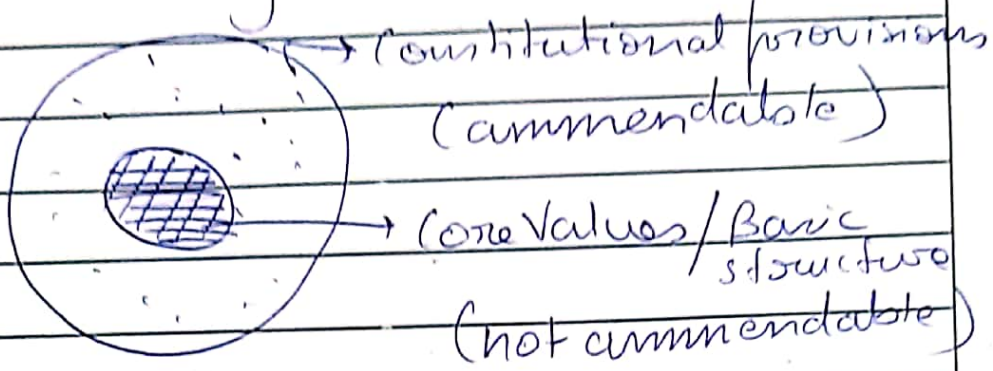 Constitutional provisions
(ammendable)
Core Values / Basic
structure
(not ammendable)